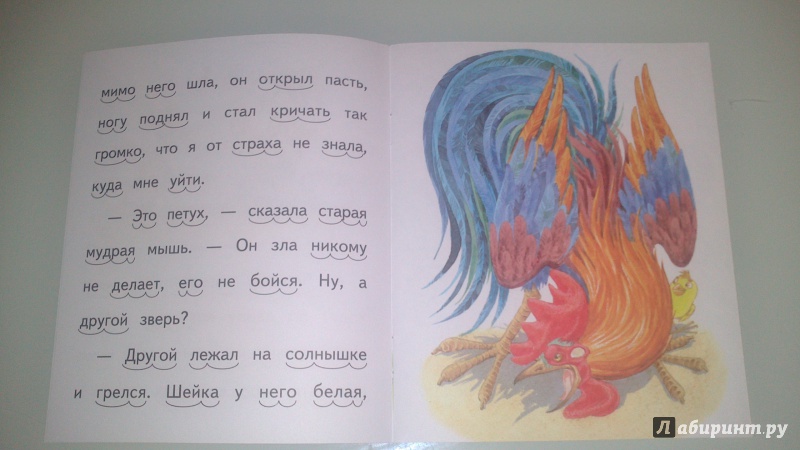 мимо него шла, он открыл пасть,
ногу поднял и стал кричать так
громко, что я от страха не знала,
куда мне уйти.
— Это петух, — сказала старая
мудрая мышь. — Он зла никому
не делает, его не бойся. Ну, а
другой зверь?
— Другой лежал на солнышке
и грелся. Шейка у него белая,
Лабиринт.ру